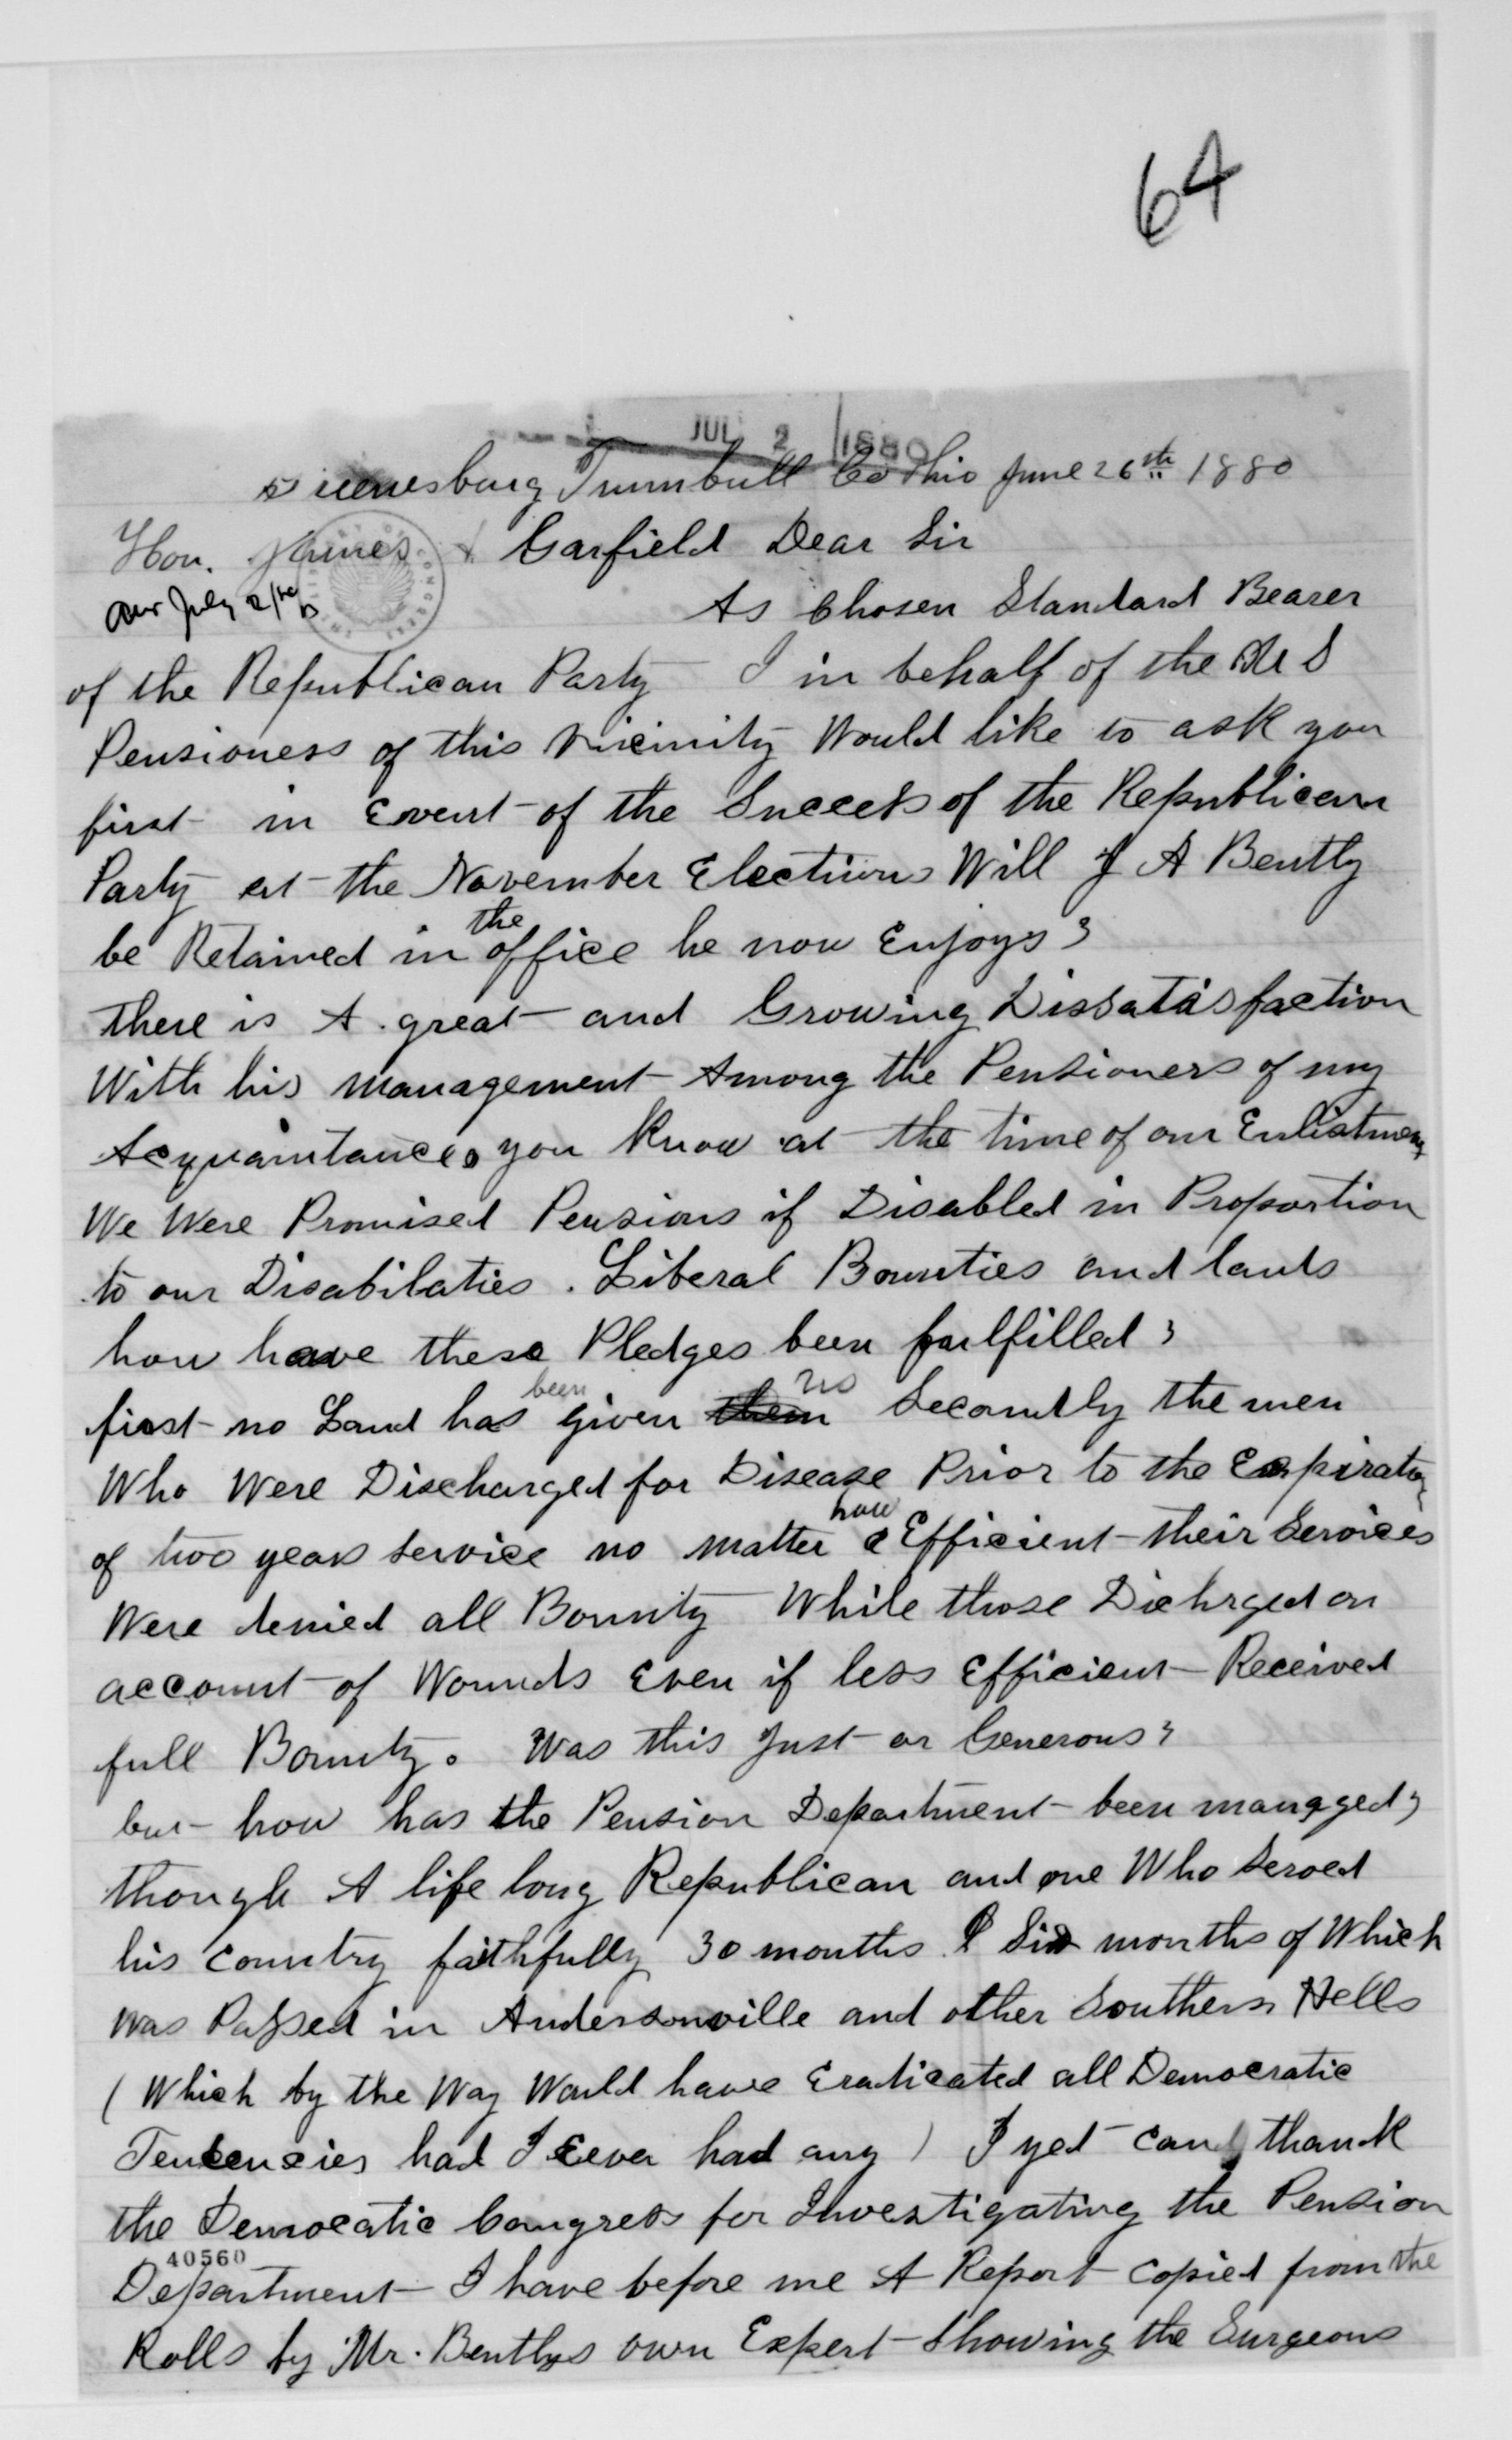 64
JUL 2 1880
Trumbull Co Ohio June 26th 1880
Hon. James A Garfield Dear Sir
Ans July 2/80
As Chosen Standard Bearer
of the Republican Party I in behalf of the U S
Pensioners of this Vicinity Would like to ask you
first in Event of the Success of the Republican
Party at the November Elections Will J A Bently
be Retained in the office he now Enjoys?
there is A great and Growing Dissatisfaction
With his management Among the Pensioners of my
Acquaintances you Know at the time of our Enlistment
We Were Promised Pensions if Disabled in Proportion
to our Disabilaties . Liberal Bounties and lands
how have these Pledges been fulfilled?
first no Land has been given them us Secondly the men
Who Were Discharged for Disease Prior to the Expiration
of two years service no matter how Efficient their Services
Were denied all Bounty While those Dicharged on
account of Wounds Even if less Efficient Received
full Bounty. Was this Just or Generous?
but how has the Pension Department been managed?
though A life long Republican and one Who Served
his country faithfully 30 months & Six months of Which
Was Passed in Andersonville and other Southern Hells
(Which by the Way Would have Eradicated all Democratic
Tendencies had I Ever had any) I yet can thank
the Democatic Congress for Investigating the Pension
40560
Department I have before me A Report copied from the
Rolls by Mr. Bentlys own Expert Showing the Surgeons